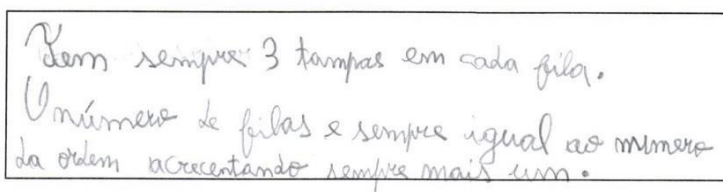 Tem sempre 3 tampas em cada fila.
O número de filas e sempre igual ao numero
da ordem acrecentando sempre mais um.